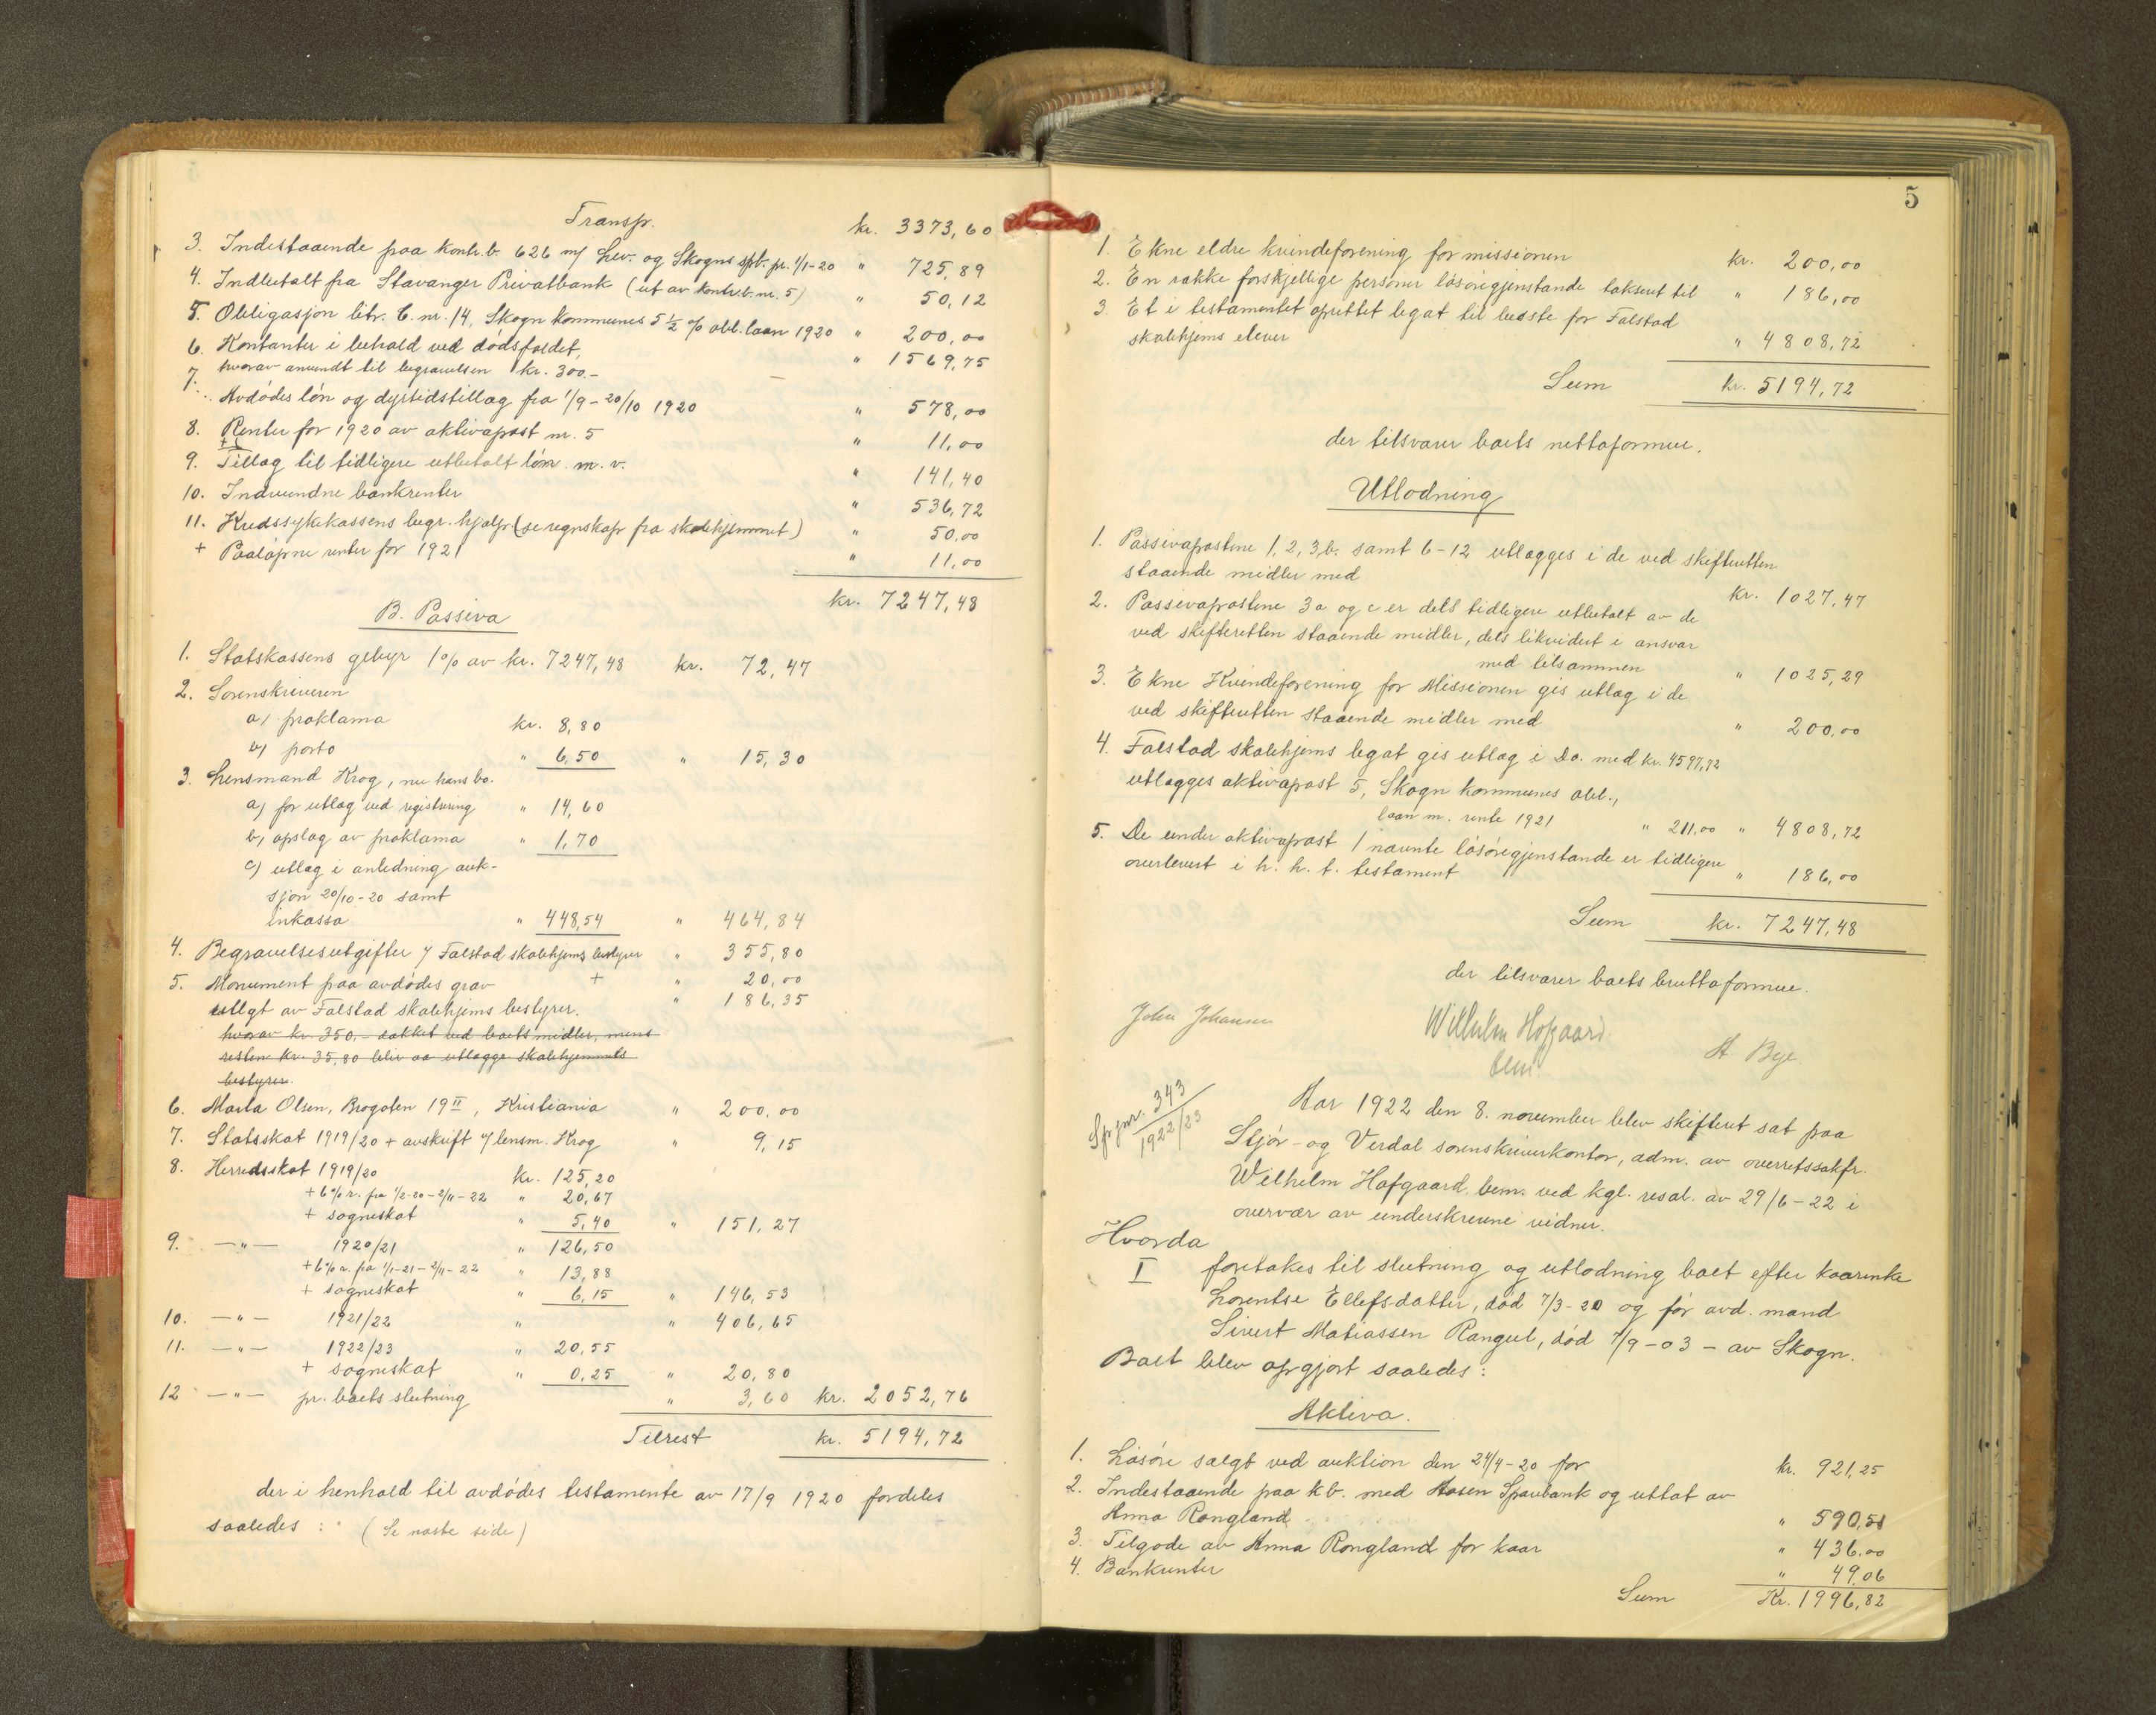 Transp. kr. 3373,60
3. Indestaaende paa kontr.b. 626 m/ Lev. og Skogns spb. pr. 1/1-20 " 725,89
4. Indbetalt fra Stavanger Privatbank (ut av kontr.b. nr. 5) " 50,12
5. Obligasjon litr. C. nr. 14, Skogn kommunes 5 ½ % obl. laan 1920 " 200,00
6. Kontanter i behold ved dødsfaldet, " 1569,75
hvorav anvendt til begravelsen kr. 300.-
7. Avdødes løn og dyrtidstillæg fra 1/9-20/10 1920 " 578,00
8. Renter for 1920 av aktivapost nr. 5 " 11,00
9. Tillæg til tidligere utbetalt løn m. v. " 141,40
10. Indvundne bankrenter " 536,72
11. Kredssykekassens begr. hjælp (se regnskap fra skolehjemmet) " 50,00
+ Paaløpne renter for 1921 " 11,00
kr. 7247,48
B. Passiva
1. Statskassens gebyr 1% av kr. 7247,48 kr. 72,47
2. Sorenskriveren
a) proklama kr. 8,80
b) porto " 6,50 " 15,30
3. Lensmand Krog, nu hans bo.
a) for utlæg ved registrering " 14,60
b) opslag av proklama " 1,70
c) utlæg i anledning auk-
sjon 20/10-20 samt
inkasso " 448,54 " 464,84
4. Begravelsesutgifter v/ Falstad skolehjems bestyrer " 355,80
+ " 20,00
5. Monument paa avdødes grav " 186,35
utlgt av Falstad skolehjems bestyrer.
hvorav kr. 350,- dækket ved boets midler, mens
resten kr. 35,80 blev av utlægge skolehjemmets
bestyrer.
6. Marta Olsen, Brogaten 19 II, Kristiania " 200,00
7. Statsskat 1919/20 + avskrift v/ lensm. Krog " 9,15
8. Herredsskat 1919/20 kr. 125,20
+ 6% r. fra 1/2-20-2/11-22 " 20,67
+ sogneskat " 5,40 " 151,27
9. -"- 1920/21 " 126,50
+ 6% r. fra 1/1-21-2/11-22 " 13,88
+ sogneskat " 6,15 " 146,53
10. -"- 1921/22 " " 406,65
11. -"- 1922/23 " 20,55
+ sogneskat " 0,25 " 20,80
12 -"- pr. boets slutning " 3,60 kr. 2052,76
Tilrest kr. 5194,72
der i henhold til avdødes testamente av 17/9 1920 fordeles
saaledes: (Se næste side)
5
1. Ekne eldre kvindeforening for missionen kr. 200,00
2. En række forskjellige personer løsøregjenstande taksert til " 186,00
3. Et i testamentet oprettet legat til bedste for Falstad
skolehjems elever " 4808,72
Sum kr. 5194,72
der tilsvarer boets nettoformue.
Utlodning
1. Passivapostene 1, 2, 3,b. samt 6-12 utlægges i de ved skifteretten
staaende midler med kr. 1027,47
2. Passivapostene 3a og c er dels tidligere utbetalt av de
ved skifteretten staaende midler, dels likvidert i ansvar
med tilsammen " 1025,29
3. Ekne Kvindeforening for Missionen gis utlæg i de
ved skifteretten staaende midler med " 200,00
4. Falstad skolehjems legat gis utlæg i Do. med kr. 4597,72
utlægges aktivapost 5, Skogn kommunes obl.,
laan m. rente 1921 " 211,00 " 4808,72
5. De under aktivapost 1 nævnte løsøregjenstande er tidligere
overlevert i h. h. t. testament " 186,00
Sum kr. 7247,48
der tilsvarer boets bruttoformue.
John Johansen Wilhelm Hofgaard A Bye
bem.
Spjnr. 343
1922/23
Aar 1922 den 8. november blev skifteret sat paa
Stjør- og Verdal sorenskriverkontor, adm. av overretssakfr.
Wilhelm Hofgaard, bem. ved kgl. resol. av 29/6-22 i
overvær av underskrevne vidner.
Hvorda
I foretokes til slutning og utlodning boet efter kaarenke
Lorentse Ellefsdatter, død 7/3-20 og før avd. mand
Sivert Matiassen Rangul, død 7/9-03 - av Skogn.
Boet blev opgjort saaledes:
Aktiva.
1. Løsøre solgt ved auktion den 24/4-20 for kr. 921,25
2. Indestaaende paa kb. med Aasen Sparebank og uttat av
Anna Rongland " 590,51
3. Tilgode av Anna Rongland for kaar " 436.00
4. Bankrenter " 49,06
Sum Kr. 1996,82